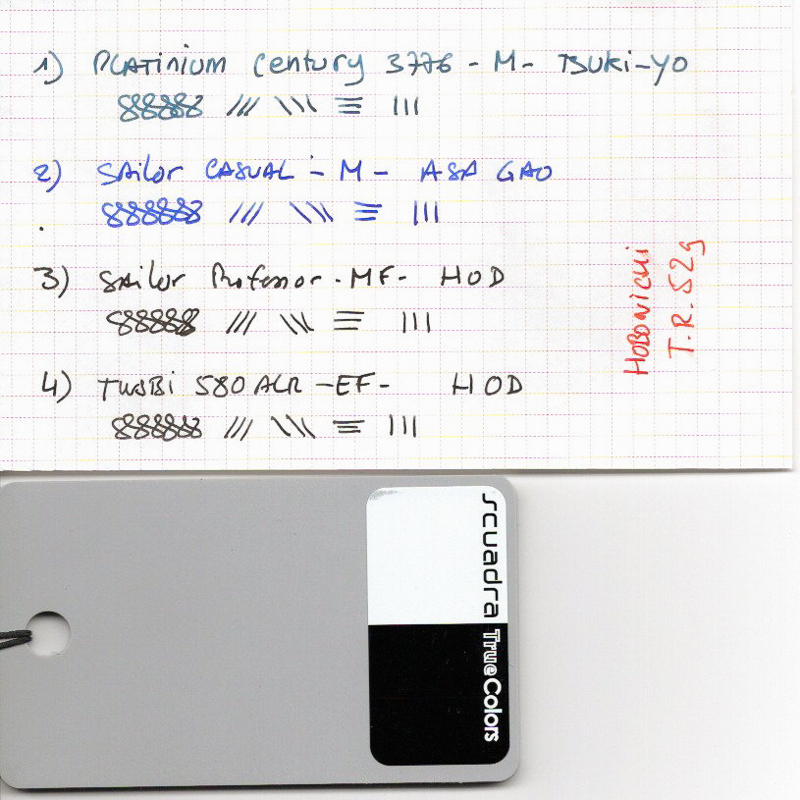 1) PLATINIUM Century 3776 - M - TSUKi-YO
888888 /// \\\ ☰ |||
2) SAilor CASUAL - M - ASA GAO
888888 /// \\\ ☰ |||
3) SAilor Professor - MF - HOD
88888 /// \\\ ☰ |||
4) TWSBi 580 ALR - EF - HOD
888888 /// \\\ ☰ |||
HOBONichi
T.R. 52g
scuadra TrueColors